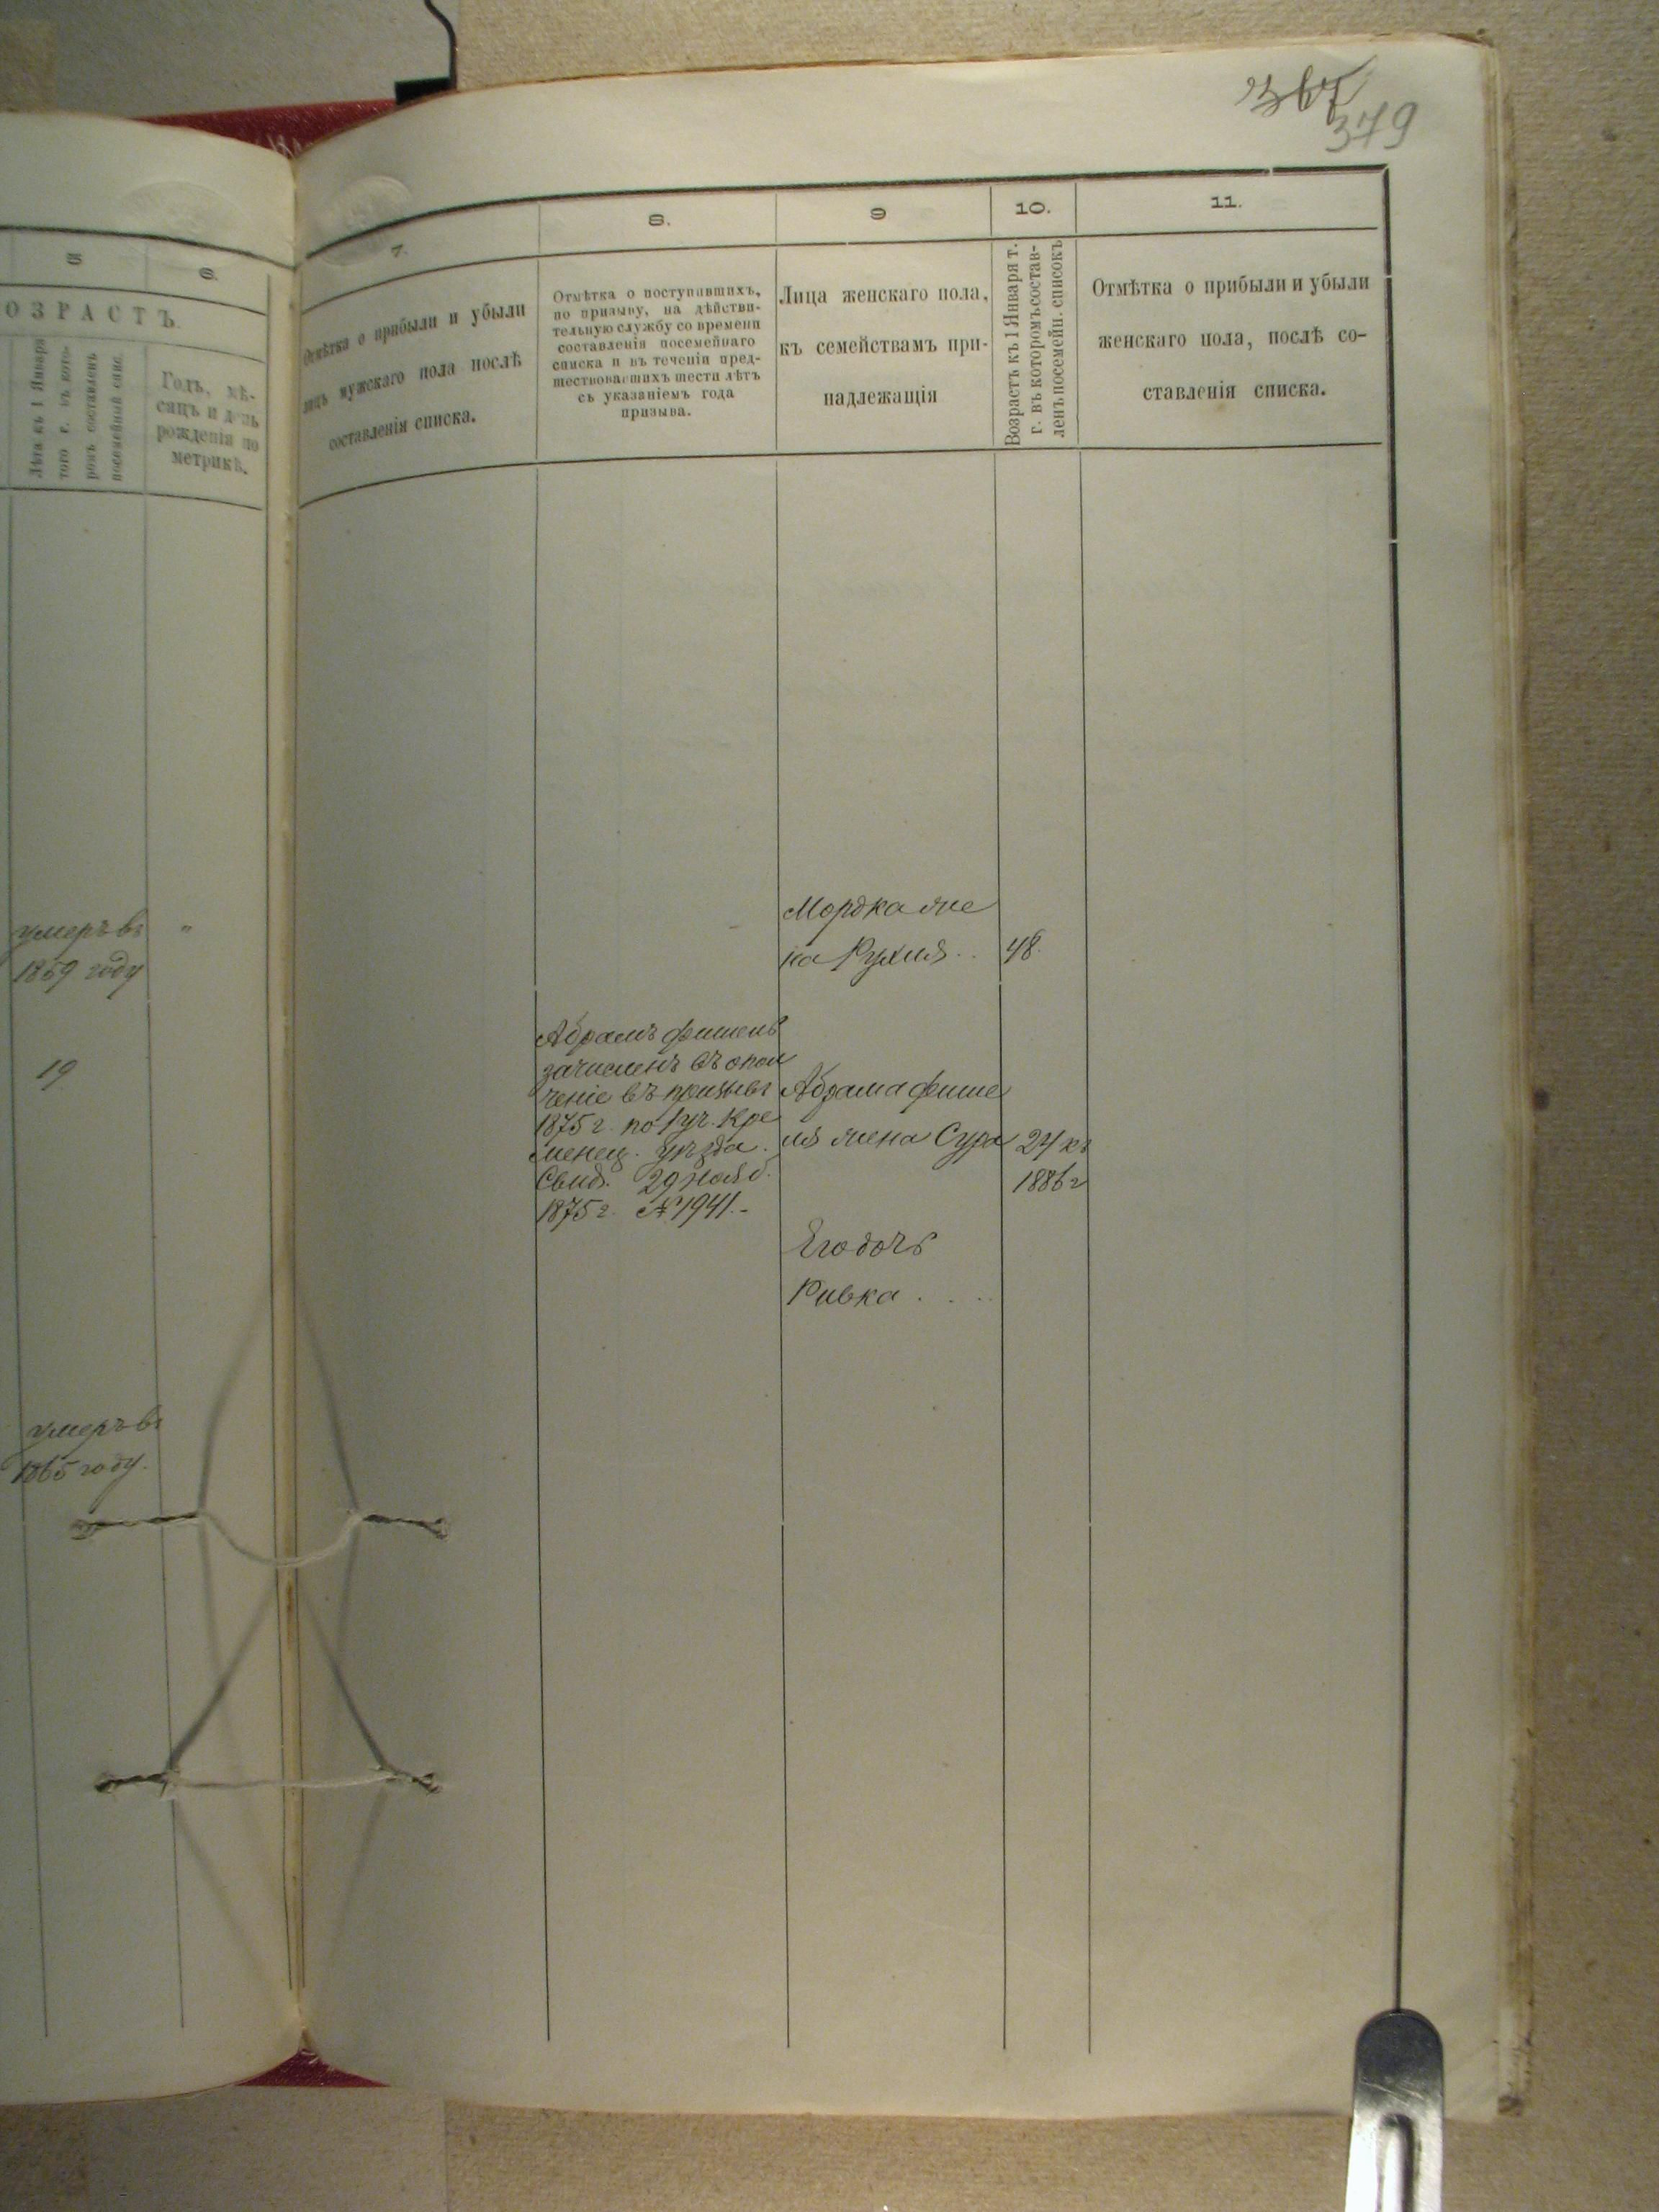 367
379
5
6.
ОЗРАСТЪ.
Лѣта къ 1 Января
того г. въ кото-
ромъ составленъ
посемейный спис.
Годъ, мѣ-
сяцъ и день
рожденія по
метрикѣ.
умеръ въ "
1859 году
19
умеръ въ
1865 году.
7.
Отмѣтка о прибыли и убыли
лицъ мужскаго пола послѣ
составленія списка.
8.
Отмѣтка о поступившихъ,
по призыву, на дѣйстви-
тельную службу со времени
составленія посемейнаго
списка и въ теченіи пред-
шествовавшихъ шести лѣтъ
съ указаніемъ года
призыва.
9
Лица женскаго пола,
къ семействамъ при-
надлежащія
10.
Возрастъ къ 1 Января т.
г. въ которомъ состав-
ленъ посемейн. списокъ
11.
Отмѣтка о прибыли и убыли
женскаго пола, послѣ со-
ставленія списка.
Абрамъ Фишель
зачисленъ въ опол
ченіе въ призывъ
1875 г. по 1 уч. Кре
менец. уѣзда.
Свид. 29 Нояб.
1875 г. № 1941.-
Мордка же
на Рухля .. 48.
Абрама Фише
ля жена Сура 24 къ
1886 г
Его дочь
Ривка . . ..